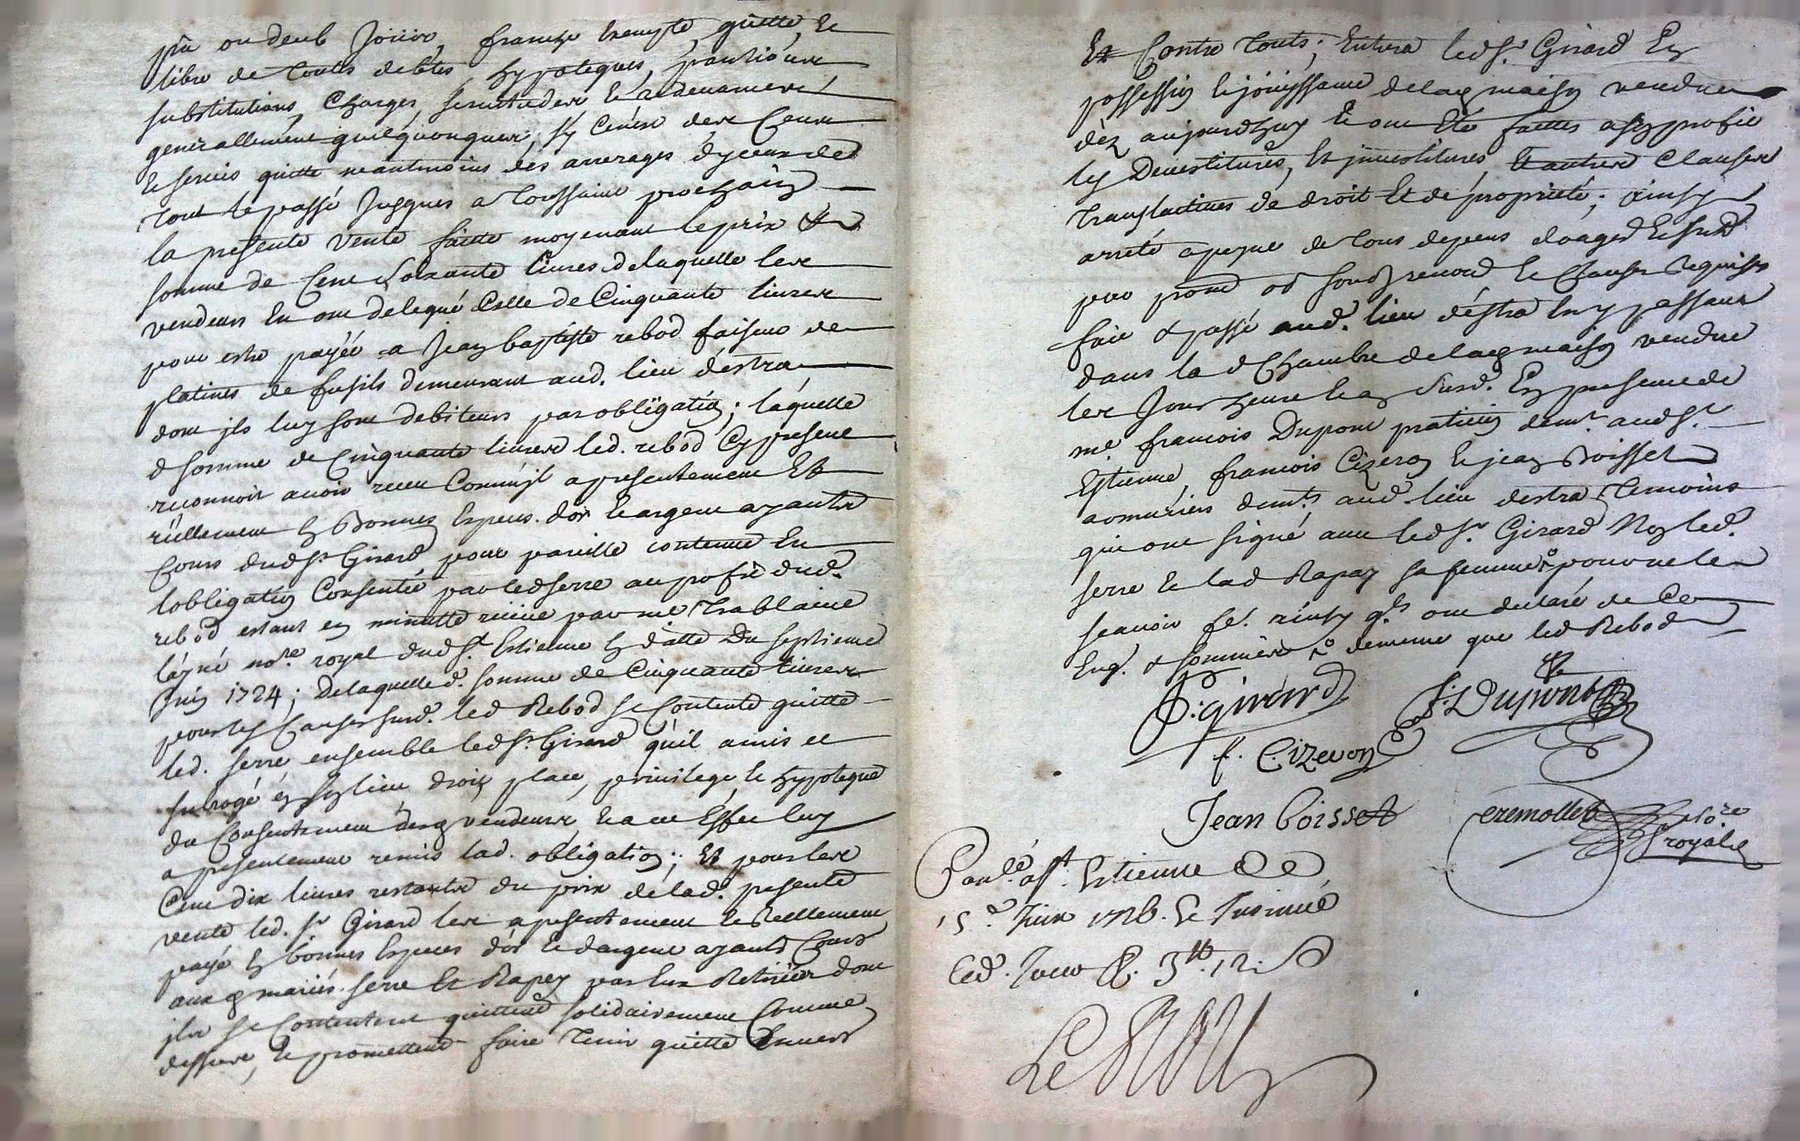 pῖn ou deub Jouir, franche Exempte, quitte, Et
libre de touts debtes, hypoteques, pantions
substitutions, Charges, servitudes et redevances
generallement quelquonques, sy Ceux des Cens
et servis quitte neantmoins des arrerages d'yceux de
tout le passé Jusques a Toussaint prochain
la presente vente faitte moyenant le prix &
somme de Cent soixante livres de laquelle les
vendeurs En ont delegué Celle de Cinquante livres
pour estre payéé a Jean baptiste rebod faiseur de
platines de fusils demeurant aud. lieu d'éstra
dont jls luy sont debiteurs par obligation; laquelle
d somme de Cinquante livres led. rebod Cy present
reconnoit avoir receu Comm'jl a presentement Et
réellement En Bonnes Especes d'or et argent ayants
Cours dud sr. Girard pour pareille contenue En
lobligation Consentie par led serre au profit dud.
rebod estant en minutte reçüe par me. Trablaine
léyné nore. royal dud st. Estienne En datte Du septieme
Juin 1724; De laquelle d. somme de Cinquante livres
pour les Causes susd. led Rebod se Contente quitte
led. serre ensemble led sr. Girard qu'il a mis et
subrogé én son lieu droit place, privilege et hypoteque
du Consentement desd vendeurs, Et a cet Effet luy
a presentement remis lad. obligation; Et pour les
Cent dix livres restants du prix de lad. presente
vente led. sr Girard les a presentement et Reellement
payé En bonnes Especes d'or et d'argent ayants Cours
aux d mariés serre Et Rapey par Eux Retirées dont
jls se Contentent quittent solidairement Comme
dessus, Et promettent faire Tenir quitte Envers
Et Contre Touts; Entrera led sr. Girard En
possession et jouissance de lad maison vendue
dèz aujourdhuy Et ont Eté faittes a son proffit
les Devestitures, Et jnvestitures Et autres Clauses
translatives de droit Et de propriété; ainsy
arrété a peyne de tous depens domages Et
par
fait & passé aud. lieu d'éstra En y passant
dans la d Chambre de lad maison vendue
les Jour heure et an susd. En presence de
me. francois Dupont praticien demt. aud st.
Estienne, francois Cizeron et jean Boisset
armuriers demts. aud. lieu destra Temoins
qui ont signé avec led sr. Girard Non led.
serre et lad Rapey sa femme pour ne le
scavoir fe. ainsy qls ont declaré de Ce
Enq. & sommés demême que led Rebod
P. girard f. Dupont
f. Cizeron
Jean boisset
cremollet Nore
royal
Conlé. a st. Estienne Ce
15e. Juin 1726. Et Insinué
led. Jour R. 3 tt. 12 s